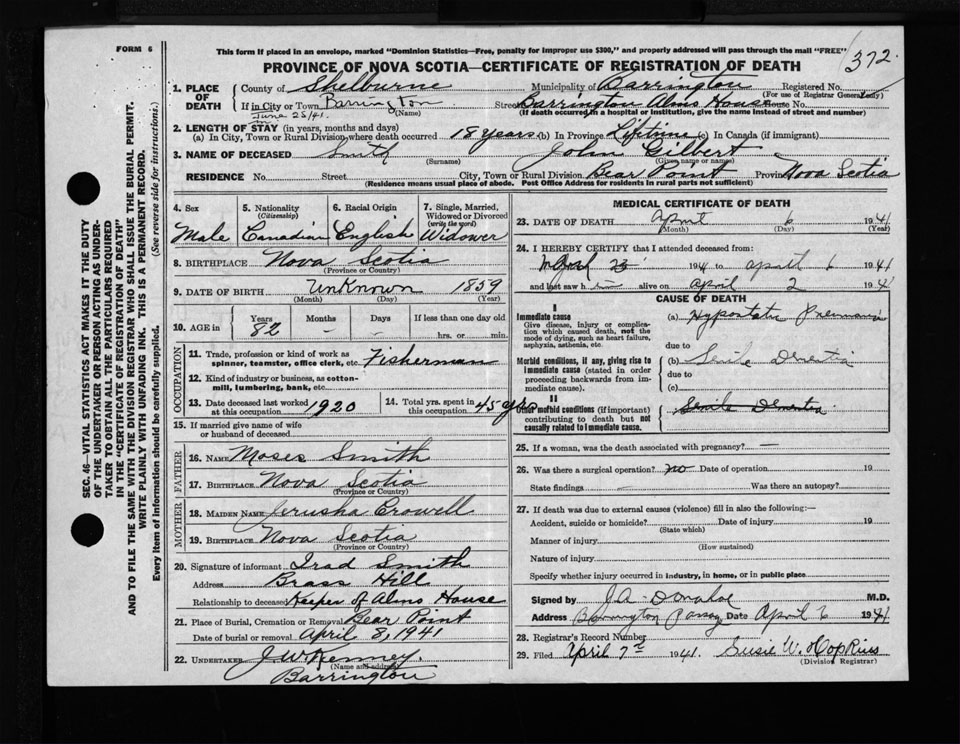 FORM 6
This form if placed in an envelope, marked "Dominion Statistics—Free, penalty for improper use $300," and properly addressed will pass through the mail "FREE"
372.
PROVINCE OF NOVA SCOTIA—CERTIFICATE OF REGISTRATION OF DEATH
SEC. 46—VITAL STATISTICS ACT MAKES IT THE DUTY
OF THE UNDERTAKER OR PERSON ACTING AS UNDER-
TAKER TO OBTAIN ALL THE PARTICULARS REQUIRED
IN THE "CERTIFICATE OF REGISTRATION OF DEATH"
AND TO FILE THE SAME WITH THE DIVISION REGISTRAR WHO SHALL ISSUE THE BURIAL PERMIT.
WRITE PLAINLY WITH UNFADING INK. THIS IS A PERMANENT RECORD.
Every item of information should be carefully supplied. (See reverse side for instructions.)
1. PLACE OF DEATH
County of Shelburne Municipality of Barrington Registered No.
(For use of Registrar General only)
If in City or Town Barrington Street Barrington Alms House House No.
(Name) (If death occurred in a hospital or institution, give the name instead of street and number)
June 25/41.
2. LENGTH OF STAY (in years, months and days)
(a) In City, Town or Rural Division where death occurred 18 years (b) In Province Lifetime (c) In Canada (if immigrant)
3. NAME OF DECEASED Smith John Gilbert
(Surname) (Given name or names)
RESIDENCE No. Street City, Town or Rural Division Bear Point Province Nova Scotia
(Residence means usual place of abode. Post Office Address for residents in rural parts not sufficient)
4. Sex Male
5. Nationality (Citizenship) Canadian
6. Racial Origin English
7. Single, Married, Widowed or Divorced (write the word) Widower
8. BIRTHPLACE Nova Scotia
(Province or Country)
9. DATE OF BIRTH Unknown 1859
(Month) (Day) (Year)
10. AGE in Years 82 Months – Days If less than one day old
hrs. or min.
OCCUPATION
11. Trade, profession or kind of work as spinner, teamster, office clerk, etc. Fisherman
12. Kind of industry or business, as cotton-mill, lumbering, bank, etc.
13. Date deceased last worked at this occupation 1920
14. Total yrs. spent in this occupation 45 yrs
15. If married give name of wife or husband of deceased
FATHER
16. Name Moses Smith
17. Birthplace Nova Scotia
(Province or Country)
MOTHER
18. MAIDEN NAME Jerusha Crowell
19. Birthplace Nova Scotia
(Province or Country)
20. Signature of informant Irad Smith
Address Brass Hill
Relationship to deceased Keeper of Alms House
21. Place of Burial, Cremation or Removal Bear Point
Date of burial or removal April 8, 1941
22. UNDERTAKER J.W. Kenney.
(Name and address)
Barrington
MEDICAL CERTIFICATE OF DEATH
23. DATE OF DEATH April 6 1941
(Month) (Day) (Year)
24. I HEREBY CERTIFY that I attended deceased from:
March 23 1941 to April 6 1941
and last saw him alive on April 2 1941
CAUSE OF DEATH
I
Immediate cause
Give disease, injury or complication which caused death, not the mode of dying, such as heart failure, asphyxia, asthenia, etc.
(a) Hypostatic Pneumonia
due to
Morbid conditions, if any, giving rise to immediate cause (stated in order proceeding backwards from immediate cause).
(b) Senile Dementia
due to
(c)
II
Other morbid conditions (if important) contributing to death but not causally related to immediate cause.
Senile Dementia
25. If a woman, was the death associated with pregnancy? —
26. Was there a surgical operation? no Date of operation 19
State findings Was there an autopsy?
27. If death was due to external causes (violence) fill in also the following:—
Accident, suicide or homicide? Date of injury 19
(State which)
Manner of injury
(How sustained)
Nature of injury
Specify whether injury occurred in industry, in home, or in public place
Signed by J.A. Donahoe M.D.
Address Barrington Passage Date April 6 1941
28. Registrar's Record Number
29. Filed April 7th 1941. Susie W. Hopkins
(Division Registrar)